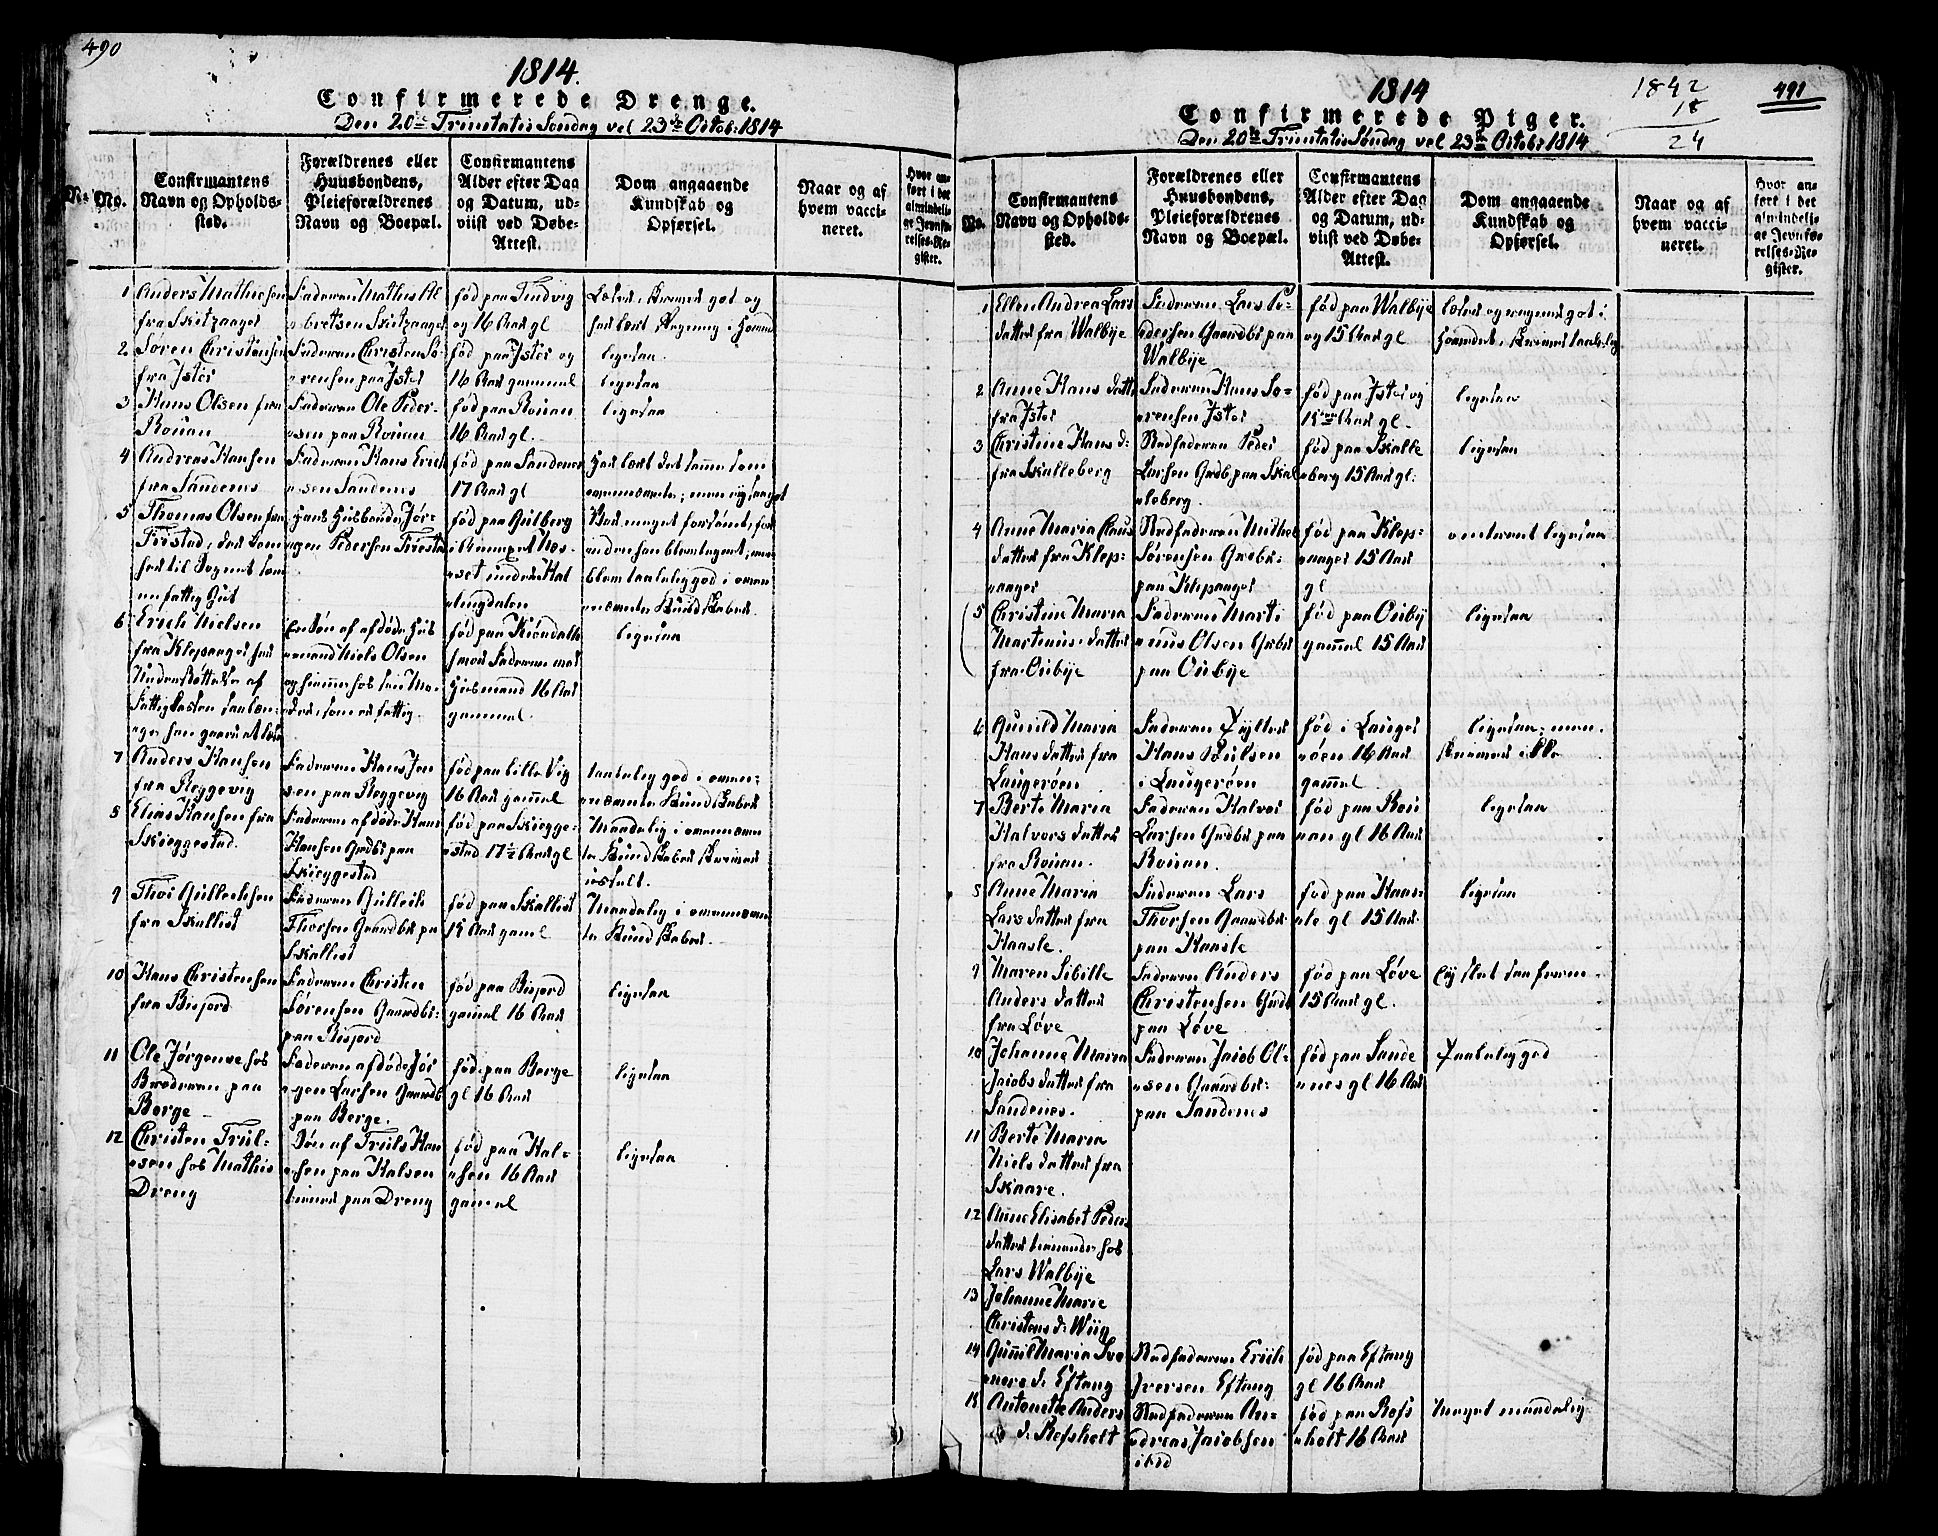 490
1814.
Confirmerede Drenge.
Den 20de Trinitatis Søndag vel 23de Octob: 1814
N: No.
Confirmantens Navn og Opholds-sted.
Forældrenes eller Huusbondens, Pleieforældrenes Navn og Boepæl.
Confirmantens Alder efter Dag og Datum, ud-viist ved Døbe-Attest.
Dom angaaende Kundskab og Opførsel.
Naar og af hvem vacci-neret.
Hvor an-ført i det almindeli-ge Jevnfø-relses-Re-gister.
1 Anders Mathiesen
fra Skitzaager
Faderen Mathis Al
bretsen Skitzaager
fød paa Tindvig
og 16 Aar gl
Læser, skriver got og
2 Søren Christensen
fra Ister
Faderen Christen Sø
rensen paa Ister
fød paa Ister og
16 Aar gammel
ligesaa
ligesaa
3 Hans Olsen fra
Rouan
Faderen Ole Peder-
sen paa Rouan
fød paa Rouan
16 Aar gl.
ligesaa
4 Andreas Hansen
fra Sandenes
Faderen Hans Erich
sen Sandenes
fød paa Sandenes
17 Aar gl
har lært det samme som
5 Thomas Olsen fra
Firestad, der kom
her til Sognet som
en fattig Gut
Hans Huusbonde Jør-
gen Pedersen Firestad
fød paa Gulberg
6 Erich Nielsen
fra Klepaager har
Understøttelse af
Fattigkassen
En Søn af afdøde Huus
mand Niels Olsen
og hiemme hos sin Mo-
der, som er fattig.
Faderen var
Huusmand 16 Aar
gammel.
ligesaa
7 Anders Hansen
fra Reggevig
Faderen Hans Jen
sen paa Reggevig
fød paa lille Vig
16 Aar gammel
taalelig god i ovenn-
ævnte Kundskaber
8 Elias Hansen fra
Skieggestad
Faderen afdøde Hans
Hansen Grdbr paa
Skieggestad
fød paa Skiegge-
stad 17½ Aar gl
Maadelig i ovennævn
te Kundskaber skriver
9 Thor Gullichsen
fra Skallist
Faderen Gullich
Thorsen Gaardbr pa
Skallist
fød paa Skallist
15 Aar gaml
Maadelig i ovennævn
te Kundskaber.
10 Hans Christensen
fra Bisjord
Faderen Christen
Sørensen Gaardbr-
paa Bisjord
fød paa Bisjord
gamel 16 Aar
ligesaa
11 Ole Jørgense hos
Broderen paa
Berge
Faderen afdøde Jør
gen Larsen Gaardb
paa Berge.
fød paa Berge
gl 16 Aar
ligesaa
12 Christen Truls-
sen hos Mathis
Dreng
Søn af Truls Han
sen paa Halsen
tienner paa Dreng
fød paa Hal-
sen 16 Aar
gamel
ligesaa
1814
1842
18
24
491
Confirmerede Piger.
Den 20de Trinitatis Søndag vel 23de Octobr 1814
No.
Confirmantens Navn og Opholds-sted.
Forældrenes eller Huusbondens, Pleieforældrenes Navn og Boepæl.
Confirmantens Alder efter Dag og Datum, ud-viist ved Døbe-Attest.
Dom angaaende Kundskab og Opførsel.
Naar og af hvem vacci-neret.
Hvor an-ført i det almindeli-ge Jevnfø-relses-Re-gister.
1 Ellen Andrea Lars
datter fra Walbye
Faderen Lars Pe-
dersen Gaardbr paa
Walbye
fød paa Walbye
og 15 Aar gl
læser og regner got i
Hovedet, skriver taalelig
2 Anne Hans datter
fra Ister
Faderen Hans Sø-
rensen Ister
fød paa Ister og
15 Aar gl.
ligesaa
3 Christine Hans d:
fra Skalleberg
Stedfaderen Peder
Larsen Grdb paa Skal
leberg.
fød paa Skalle
berg 15 Aar gl.
ligesaa
4 Anne Maria Claus
datter fra Klep-
aager
Stedfaderen Mathis
Sørensen Grdbr-
paa Klepaager
fød paa Klep-
aager 15 Aar
gl
omtrent ligesaa
5 Christine Maria
Martinus-datter
fra Ouebye
Faderen Marti
nus Olsen Grdbr
paa Ouebye
fød paa Ouby
gammel 15 Aar
ligesaa
6 Gunild Maria
Hansdatter fra
Laugerøen
Hans Poulsen
i Laugerøen
fød i Lauger
øen 16 Aar
gammel.
ligesaa; men.
7 Berte Maria
Halvors datter
fra Rouan.
Faderen Halvor
Larsen Grdbr paa
Rouan.
fød paa Rou
an gl 16 Aar
ligesaa
8 Anne Maria
Lars datter fra
Haasle.
Faderen Lars
Thorsen Gaardbr
paa Haasle
fød paa Haas-
le gl 15 Aar.
ligesaa
9 Maren Sibille
Anders datter
fra Løve
Faderen Anders
Christensen Grdb
paa Løve
fød paa Løve
15 Aar gl.
10 Johanne Maria
Jacobs datter fra
Sandenes.
Faderen Jacob Ol-
sen Gaardbr-
paa Sandenes
fød paa Sande
nes gl 16 Aar
Taalelig god
11 Berte Maria
Niels datter fra
Skaare.
12 Anne Elisabet Peder
datter tienende hos
Lars Walbye
13 Johanne Marie
Christens d: Wiig
14 Gunnil Maria Ive
rs d: Eftang
Stedfaderen Erich
Iversen Eftang
fød paa Eftang
gl 16 Aar
15 Antonette Anders
d: Refsholt
Stedfaderen An-
dreas Jacobsen
ibid
fød paa Refs
holt 16 Aar
Meget maadelig